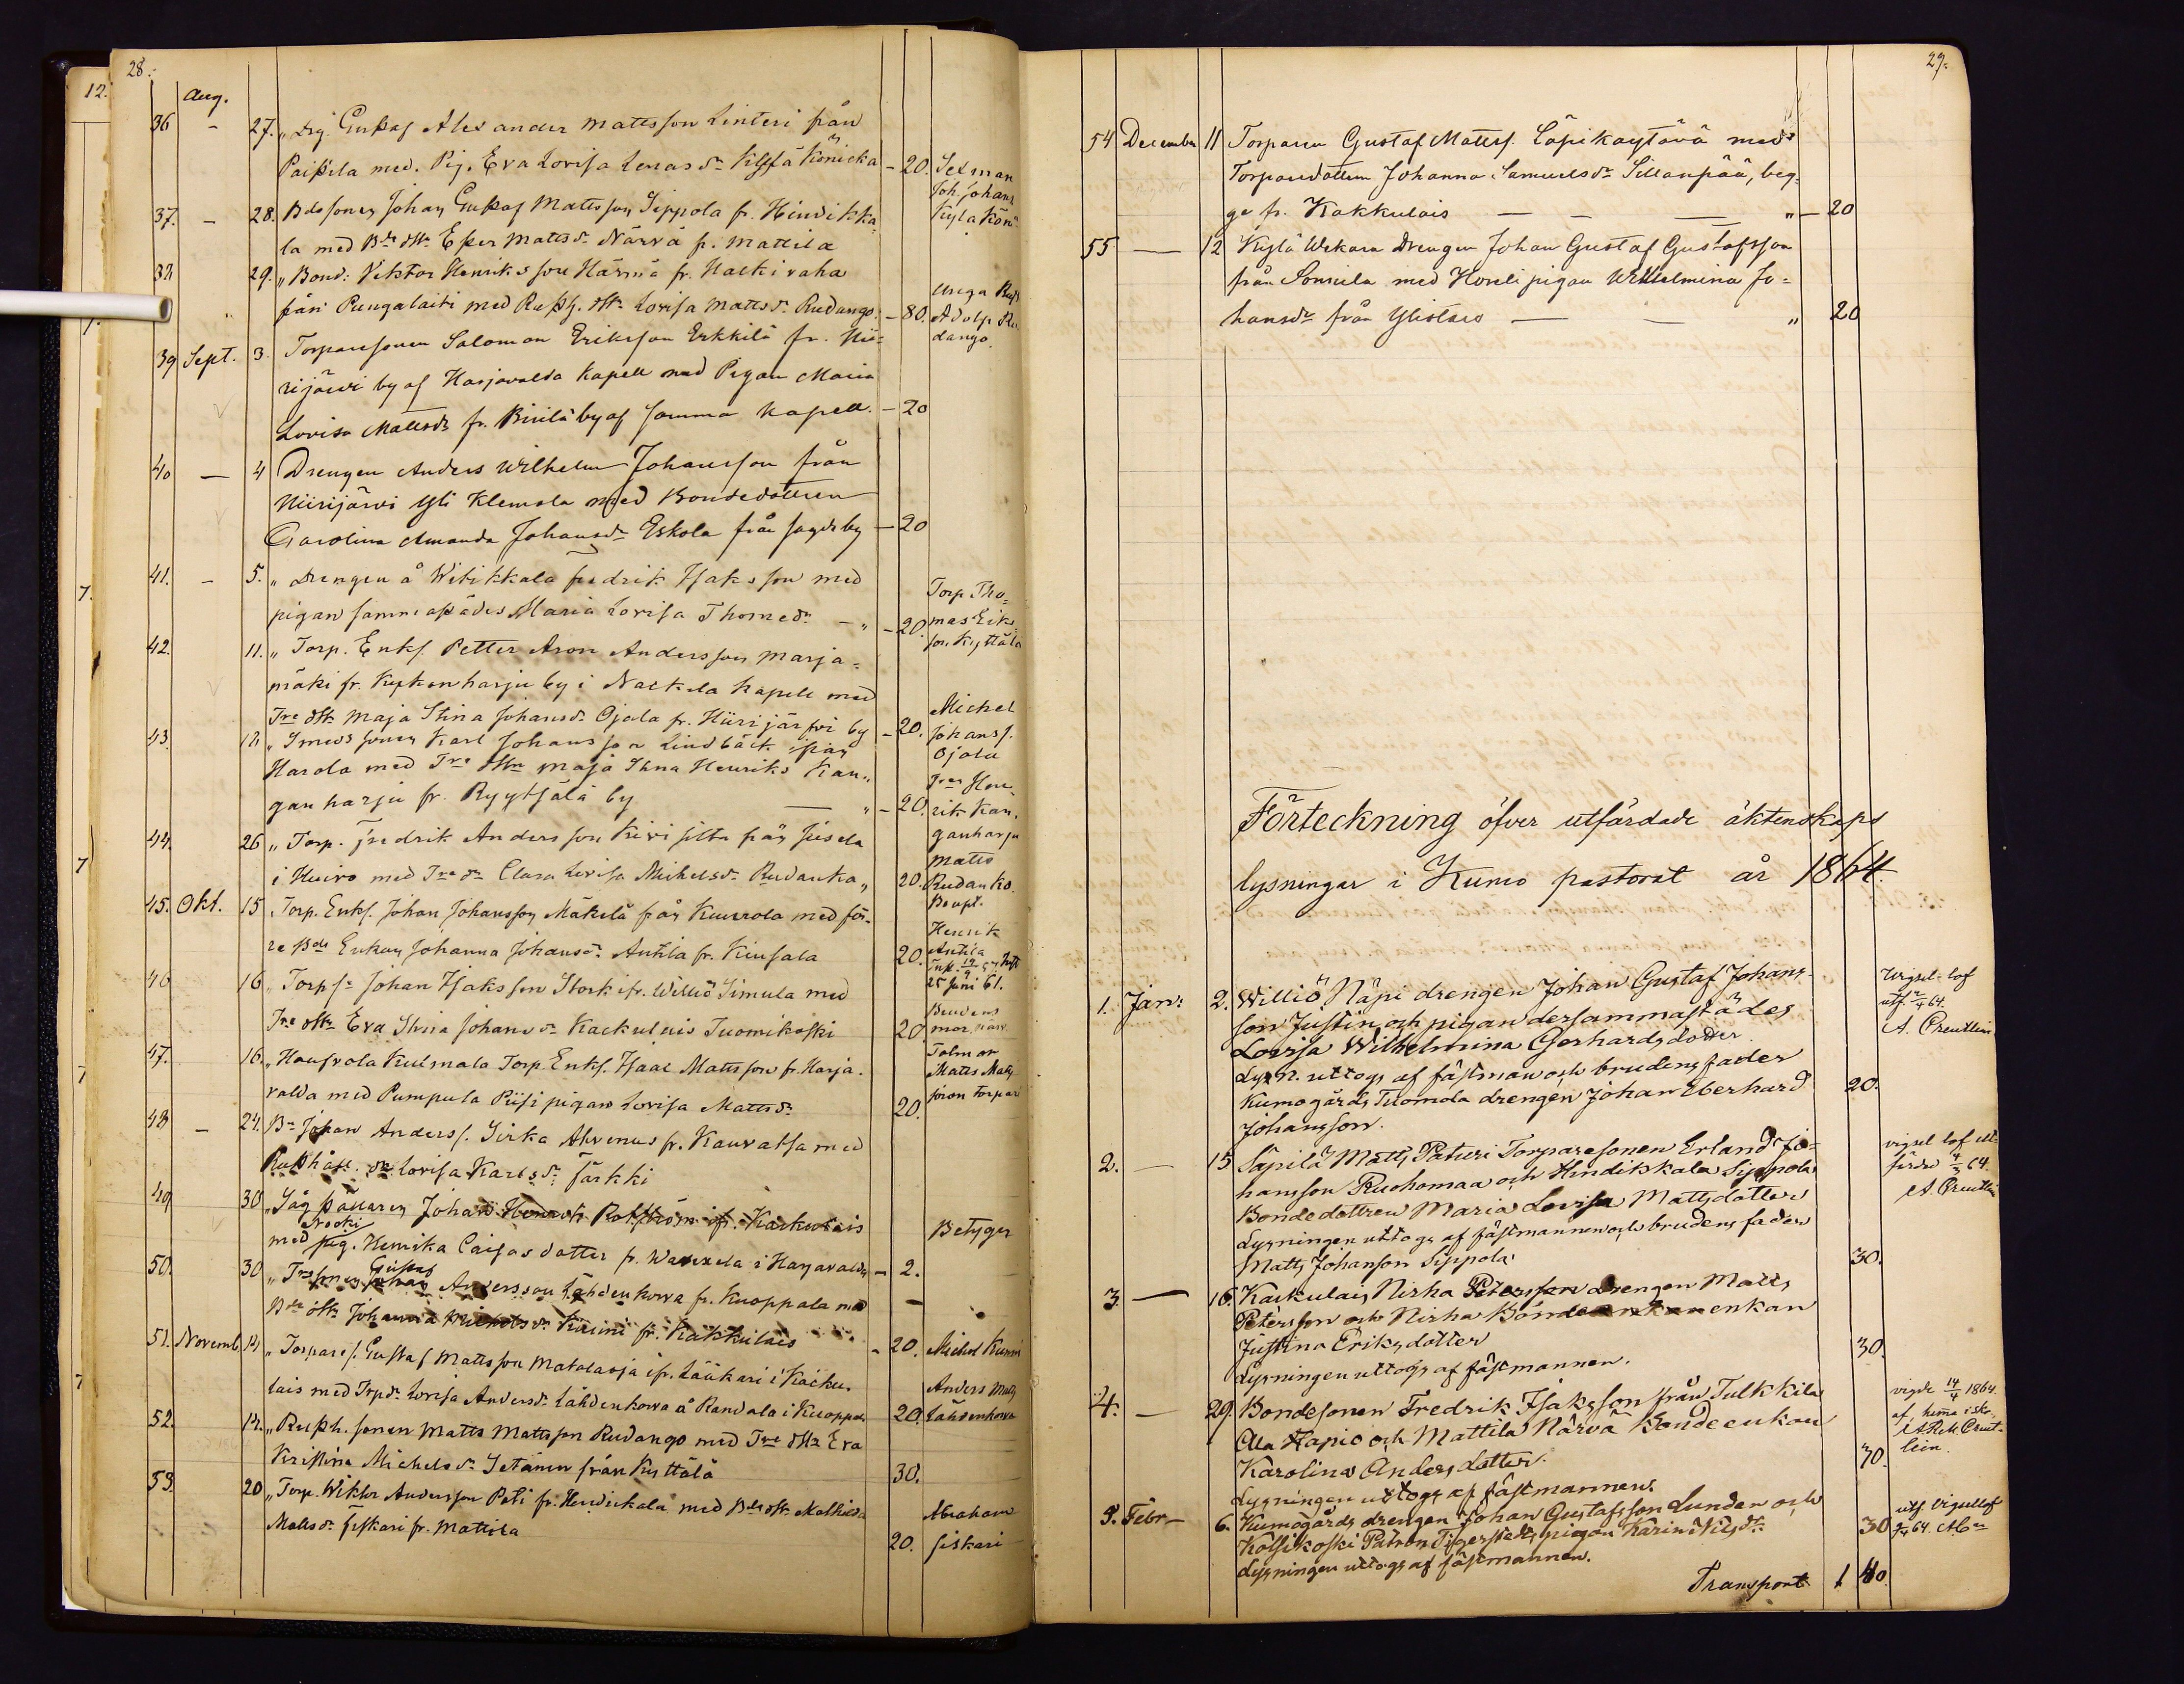 28.
12.
Aug.
36 - 27. „ Drg. Gustaf Alexander Mattsson Linteri från
Paistila med. Pig. Eva Lovisa Lenas dr Kylä Könickä - 20. Setman
Joh. Johans
Kylä Köni
37. - 28. Bdesonen Johan Gustaf Mattsson Sippola fr. Hindikka-
la med Bde dtr Ester Mattsdr Närvä fr. Mattila
38 29. „ Bond: Viktor Henriksson Härmä fr. Harkiraha
från Pungalaiti med Rusth. dtr Lovisa Mattsdr Rudango. - 80.
Unga Rusth
Adolf Ru-
dango.
39 Sept. 3. Torparesonen Salomon Eriksson Erkkilä fr. Hii-
rijärvi by af Harjavalda Kapell med Pigan Maria
Lovisa Mattsdr fr. Pirilä by af samma Kapell. - 20
40 - 4 Drengen Anders Wilhelm Johansson från
Hiirijärvi Yli Klemola med Bondedottren
Carolina Amanda Johansdr Eskola från sagde by - 20
41. - 5. „ Drengen å Witikkala Fredrik Isaksson med
pigan sammastädes Maria Lovisa Thomedr - „ - 20.
Torp. Tho-
mas Erik-
son Kyttälä
42. 11. „ Torp. Enkl. Petter Aron Andersson Marja-
mäki fr. Kyrkonharju by i Nackila Kapell med
Tre dtr Maja Stina Johansdr Ojala fr. Hiirijärfvi by - 20.
Michel
Johanss.
Ojala
43. 12. „ Smeds sonen Karl Johansson Lindbäck ifrån
Harola med Tre dtr Maja Stina Henriks Kan-
ganharju fr. Ryytsälä by — „ - 20.
Tren Hen-
rik Kan-
ganharju
44. 26 „ Torp. Fredrik Andersson Kivisilta från
i Huiro med Tre dr Clara Lovisa Michelsdr Rudanko „ 20.
Matts
Rudanko.
45. Okt. 15 „ Torp. Enkl. Johan Johansson Mäkilä från Kuurola med för-
re Bde Enkan Johanna Johansdr Anttila fr. Kiusala 20.
Henrik
Anttila
25 Juni 61.
46 16 „ Torp sn Johan Isaksson Stork ifr. Williö Simula med
Tre dtr Eva Stina Johansdr Kackulais Tuomikoski 20
Brudens
mor
47. 16. „ Haufvola Kulmala Torp. Enkl. Isaac Mattsson fr. Harja-
valda med Pumpula Piisi pigan Lovisa Mattsdr 20.
Matts Matts
son torpar
48 - 24. Bn Johan Anderss. Sirka Ahvenus fr. Kauvatsa med
Rusthåll. dtr Lovisa Karlsdr Järkki
49 30 „ Sågställaren Johan Henrik Rosström ifr. Kackulais
Nooki
med pig. Henrika Caisas dotter fr. Warkela i Harjavalda - 2.
Betyger
50. 30 „ Tresonen Gustaf Johan Andersson Lähdenkorva fr. Kuoppala med -
Bde dtr Johanna Michelsdr Kuuni fr. Kakkulais - 20. Michel Kuuni
51. Novemb. 14 „ Torpares. Gustaf Mattsson Matalaoja ifr. Lääkari i Kacku-
lais med Trpdr Lovisa Andersdr Lähdenkorva å Randala i Kuoppala 20.
Anders Matts
Lähdenkorva
52. 14. „ Rusth. sonen Matts Mattsson Rudango med Tre dtr Eva
Kristina Michelsdr Setänen från Kyttälä 30.
53. 20 „ Torp. Wiktor Andersson Poti fr. Hindickala med Bde dtr Mathilda
Mattsdr Fiskari fr. Mattila 20.
Abraham
Fiskari
29.
54 December 11 Torparen Gustaf Matts. Läpikäytävä med
Torparedottern Johanna Samuelsdr Sillanpää, beg-
ge fr. Kakkulais — — — „ - 20
55 — 12 Kylä Wekara Drengen Johan Gustaf Gustafsson
från Sonnila med Hoseli pigan Wilhelmina Jo-
hansdr från Ylistaro — — „ 20
Förteckning öfver utfärdade äktenskaps
lysningar i Kumo pastorat år 1864.
1. Jan: 2. Williö Näpi drengen Johan Gustaf Johans-
son Justin och pigan dersammastädes
Lovisa Wilhelmina Gerhards dotter.
Lysn. uttogs af fästman och brudens fader
Kumogårds Tuomola drengen Johan Eberhard 20.
Johansson.
Wigsel-lof
utf. 64.
A. Creutlein
2. — 15 Säpilä Matts Paturi Torparesonen Erland Jo-
hansson Ruohomaa och Hindikkala Sippola
Bondedottren Maria Lovisa Mattsdotter
Lysningen uttogs af fästmannen och brudens fader
Matts Johanson Sippola. 30.
vigsel lof ut-
färdr 4/3 64.
A. Creutlein
3. — 16. Kackulais Nirha Petersson drengen Matts
Petersson och Nirha Bonde enkan
Justina Eriksdotter 30.
Lysningen uttogs af fästmannen.
4. — 29. Bondesonen Fredrik Isaksson från Tulkkila
Ala Hapio och Mattila Närvä Bondeenkan
Karolina Andersdotter. 30.
Lysningen uttogs af fästmannen.
vigde 14/4 1864.
af
A. Reh. Creut-
lein.
5. Febr. — 6. Kumogårds drengen Johan Gustafsson Lunden och
Kolsikoski Patron Tigerstedts pigan Karin Nilsdr 30
Lysningen uttogs af fästmannen.
utf. Vigsellof
64.
Transport 1 40.